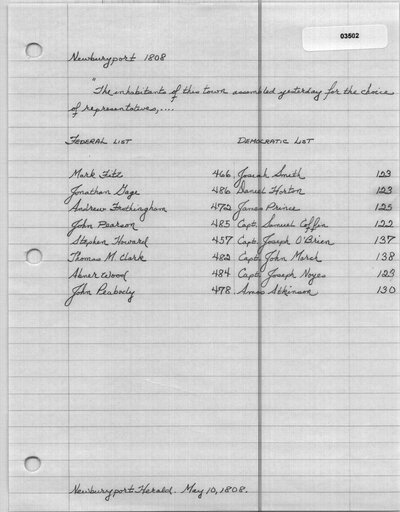 03502
Newburyport 1808
"The inhabitants of this town assembled yesterday for the choice
of representatives,....
FEDERAL LIST DEMOCRATIC LIST
Mark Fitz 466 Josiah Smith 123
Jonathan Gage 486 Daniel Horton 123
Andrew Frothingham 472 James Prince 125
John Pearson 485 Capt. Samuel Coffin 122
Stephen Howard 457 Capt. Joseph O'Brien 137
Thomas M. Clark 482 Capt. John March 138
Abner Wood 484 Capt. Joseph Noyes 123
John Peabody 478 Amos Atkinson 130
Newburyport Herald. May 10, 1808.